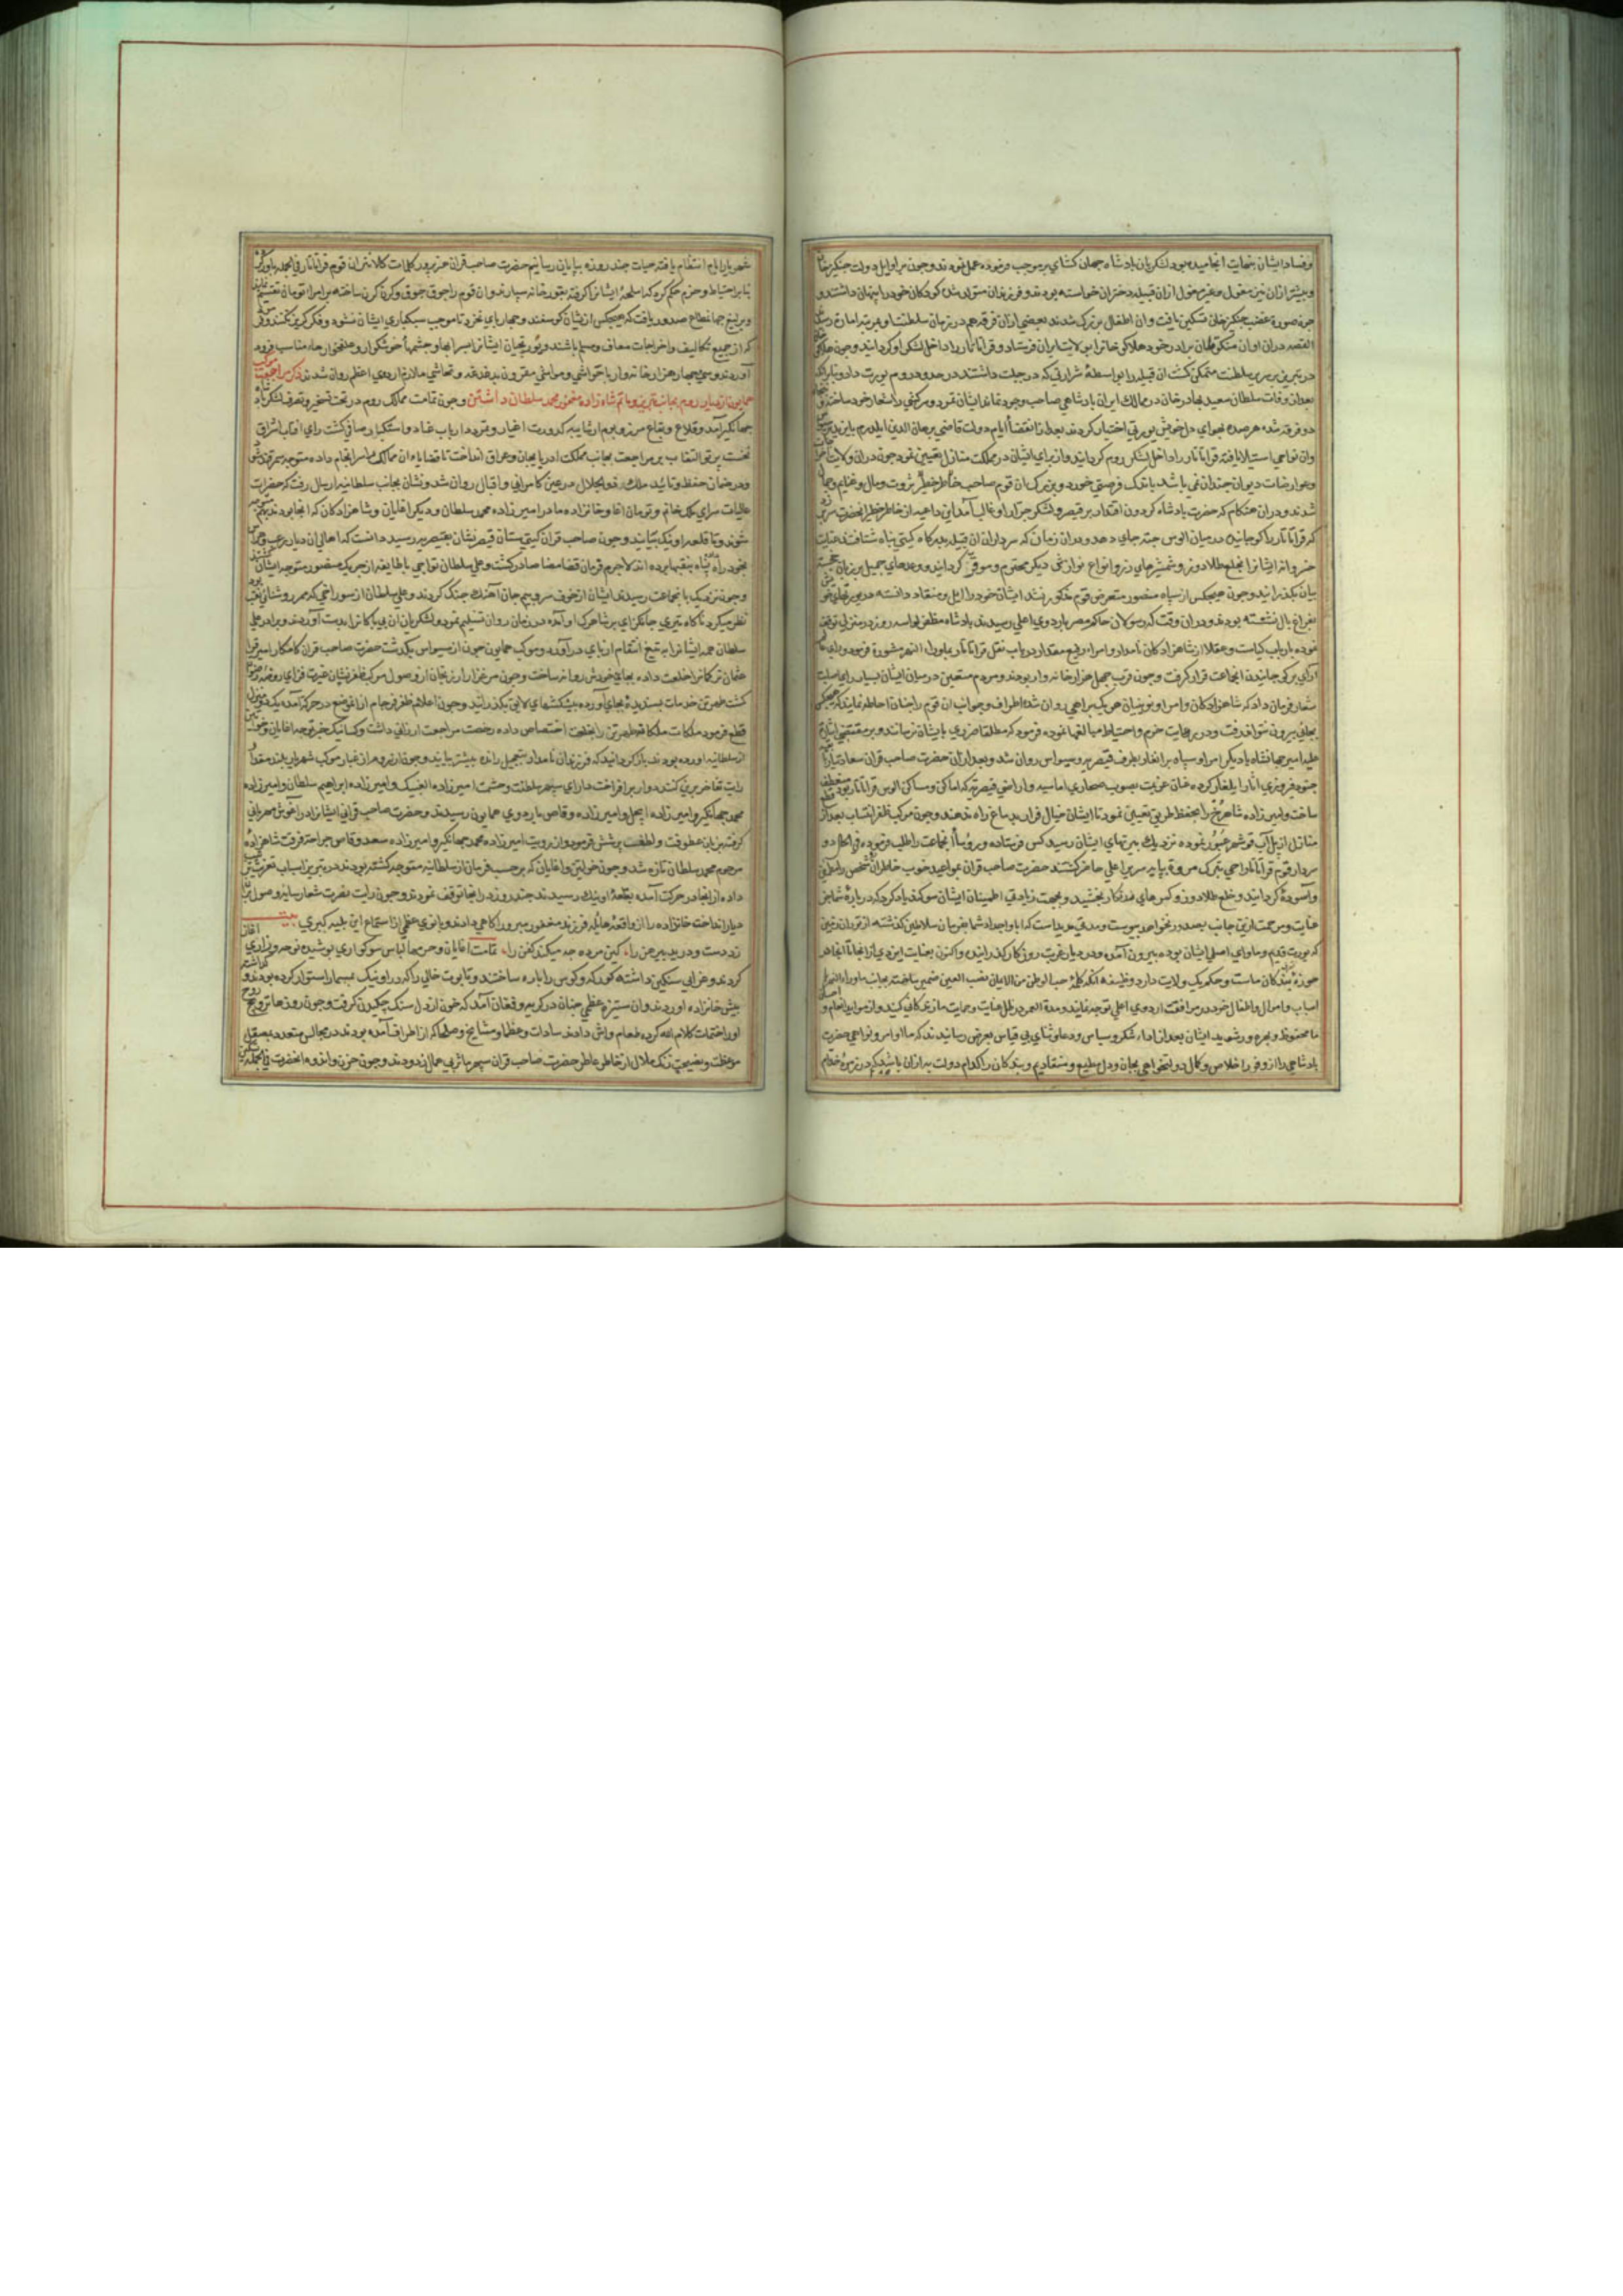 و فساد ایشان بنهایت انجامیده بود لشکریان پادشاه جهان کشای بر موجب فرموده عمل نمودند و چون در اوایل دولت چنکیز خان
و پیشتر ازان نیز مغول و غیر مغول ازان قبیله دختران خواسته بودند و فرزندان متولد شده کودکان خود را پنهان داشتند و
چون صورة غضب چنکیز خان تسکین یافت و ان اطفال بزرک شدند بعضی ازان فرقه هم در زمان سلطنت او بمرتبه امارت
القصه دران اوان منکو قاآن برادر خود هلاکو خانرا بولایت ایران فرستاد و قراتاتار را داخل لشکر او کردانید و چون هلاکو
در تبریز بر سریر سلطنت متمکن کشت ان قبیله را بواسطۀ شرارتی که در جبلت داشتند در حدود روم یورت داد و
بعد از وفات سلطان سعید بهادر خان در ممالک ایران پادشاهی صاحب وجود نماند ایشان تمرد و سرکشی را شعار خود ساختند و
دو فرقه شده هر صده بهوای دل خویش یورتی اختیار کردند بعد از انقضاء ایام دولت قاضی برهان الدین ایلدرم بایزید
وان نواحی استیلا یافته قراتاتار را داخل لشکر روم کردانید و از برای ایشان در مملکت منازل تعیین نمود چون دران ولایت
و عوارضات دیوان چندان نمی باشد باندک فرصتی خورد و بزرک ان قوم صاحب ثروت و مال و غنایم
شدند و دران هنکام که حضرت پادشاه کردون اقتدار بر قیصر و لشکر جرار او غالب آمد این داعیه از خاطر خطیر انحضرت سر زد
که قراتاتار را کوچانیده در میان الوس جته جای دهد و دران زمان که سرداران ان قبیله بدرکاه کیتی پناه شتافتند عنایت
خسروانه ایشانرا بخلع طلادوز و شمشیرهای زر و انواع نوازش دیکر محترم و موقر کردانید و وعدهای جمیل بر زبان
بیان بکذرانید و چون هیچکس از سپاه منصور متعرض قوم مذکور نشد ایشان خود را ایل و منقاد دانسته در یورتهای خود
بفراغ بال نشسته بودند و دران وقت که رسولان حاکم مصر باردوی اعلی رسیدند پادشاه مظفر لوا سه روز در منزلی توقف
نموده با ارباب کیاست و عقلا از شاهزادکان نامدار و امراء رفیع مقدار در باب نقل قراتاتار بماوراء النهر مشورة فرمود و رای
آرای بر کوچانیدن انجماعت قرار کرفت و چون قرب چهل هزار خانه وار بودند و مردم متعین در میان ایشان بسیار
شعار فرمان داد که شاهزادکان و امرا و نویینان هر یک براهی روان شده اطراف و جوانب ان قوم را چنان احاطه نمایند که هیچکس
بجایی بیرون نتواند رفت و در رعایت حزم و احتیاط مبالغها نموده فرمود که مطلقا ضرری بایشان نرسانند و بر مقتضی
علیه امیر جهانشاه با دیکر امرا و سپاه برانغار بطرف قیصریه و سیواس روان شد و بعد ازان حضرت صاحب قران سعادتیار
جنود فیروزی اثار را ایلغار کرده عنان عزیمت بصوب صحاری اماسیه و اراضی قیصریه که اماکن و مساکن الوس قراتاتار بود منعطف
ساخت و امیرزاده شاهرخ را بمحفظ طریق تعیین نمود تا ایشان خیال فرار بدماغ راه ندهند و چون مرکب ظفر انتساب بعد از
منازل از پل آب قرشهر عبور نموده نزدیک یورتهای ایشان رسید کس فرستاده و رؤسأ انجماعت را طلب فرموده فی الحال دو
سردار قوم قراتاتار اخی تبرک و مروة بپایه سریر اعلی حاضر کشتند حضرت صاحب قران بمواعید خوب خاطر ان شخص را مطمئن
و آسوده کردانید و خلع طلادوز و کمرهای مذکار بخشید و بجهت زیادتی اطمینان ایشان سوکند یاد کرد که درباره شما جز
عنایت و مرحمت ازین جانب بصدور نخواهد پیوست و مدتی مدید است که ابا و اجداد شما بفرمان سلاطین کذشته از توران زمین
که یورت قدیم و ماوای اصلی ایشان بوده بیرون آمده و در دیار غربت روزکار کذرانیده و اکنون بعنایت ایزدی از اینجا تا انجا در
حوزۀ بندکان ماست و حکم یک ولایت دارد وظیفه انکه کلمۀ حب الوطن من الایمان نصب العین ضمیر ساخته بجانب ماوراءالنهر
اسباب و اموال و اطفال خود در موافقت اردوی اعلی توجه نمایند و مدة العمر در ظل عنایت و حمایت ما زندکانی کنید و از مواید انعام و
ما محفوظ و بهره ور شوید ایشان بعد از اداء شکر و سپاس و دعا و ثنای بی قیاس بعرض رسانیدند که ما اوامر و نواهی حضرت
پادشاهی را از وفور اخلاص و کمال دولتخواهی بجان و دل مطیع و منقادیم و بندکان را کدام دولت به ازان باشد که در زمرۀ خدام
شهریار ایام انتظام یافته حیات چند روزه بپایان رسانیم حضرت صاحب قران عزیزور کلمات کلانتران قوم قراتاتار فی الجمله باور کرد
بنابر احتیاط و حزم حکم کرد که اسلحۀ ایشانرا کرفته بقورخانه سپارند و ان قوم را جوق جوق و کرن کرن ساخته بر امرا تومان تقسیم
و یرلیغ جهانمطاع صدور یافت که هیچکس ازیشان کوسفند و چهارپای نخرد تا موجب سبکباری ایشان نشود و فکر کریز نکنند
که از جمیع تکالیف و اخراجات معاف و مسلم باشند و یورتجیان ایشانرا بسرابها و چشمهأ خوشکوار و علفخوارهاء مناسب فرود
آوردند و سی چهار هزار خانه وار با حواشی و مواشی مقرون بدغدغه و تحاشی ملازم اردوی اعظم روان شدند ذکر مراجعت موکب
همایون از دیار روم بجانب تبریز و ماتم شاه زاده مغفور محمد سلطان داشتن و چون تمامت ممالک روم در تحت تسخیر و تصرف لشکر
جهانکیر آمد و قلاع و بقاع مرز و بوم ازشایبه کدورت اغیار و تمرد ارباب عناد و استکبار صافی کشت رای افتاب اشراق
نخست پرتو التفات بر مراجعت بجانب مملکت ادربایجان و عراق انداخت تا قضایاء ان ممالک را سرانجام داده متوجه سمرقند شود
و در ضمان حفظ و تائید ملک ذوالجلال در عین کامرانی و اقبال روان شد و نشان بجانب سلطانیه ارسال رفت که حضرات
عالیات سرای ملک خانم و تومان اقا و خانزاده مادر امیرزاده محمد سلطان و دیکر اقایان و شاهزادکان که انجا بودند متوجه
شوند و تا قلعه اونیک بیایند و چون صاحب قران کیتی ستان قیصر نشان بقیصریه رسید دانست که اهالی ان دیار
بخود راه داده پناه بنقبها برده اند لاجرم فرمان قضا مضا صادر کشت و علی سلطان تواجی با طایفه از چریک منصور متوجه ایشان
و چون نزدیک بانجماعت رسیدند ایشان از خوف سر و بیم جان آهنک جنک کردند و علی سلطان از سوراخی که ممر روشنائی بود
نظر میکرد ناکاه تیری جانکزای بر شاهرک او آمد در زمان روان تسلیم نمود و لشکریان ان بی باکانرا بدست آوردند و برادر علی
سلطان همه ایشانرا به تیغ انتقام از پای درآورد و موکب همایون چون از سیواس بکذشت حضرت صاحب قران کامکار امیر قرا
عثمان ترکمانرا خلعت داده بجای خویش روانه ساخت و چون مرغزار ارزنجان از وصول مرکب ظفرنشان غیرت فزای روضۀ رضوان
کشت طهرتن خدمات پسندیده بجای آورده پیشکشهای لایق بکذرانید و چون اعلام ظفر فرجام از ان موضع در حرکت آمده
قطع فرمود ملکات ملکانه طهرتن را بخلعت اختصاص داده رخصت مراجعت ارزانی داشت و کسانیکه خبر توجه اقایان
از سلطانیه اورده بودند بازکردانید که فرزندان نامدار بتعجیل رانده پیشتر بیایند و چون ارزروم از غبار موکب شهریار بلند مقدار
رایت تفاخر برین کنبد دوار برافراخت دارای سپهر سلطنت و حشمت امیرزاده الغبیک و امیرزاده ابراهیم سلطان و امیرزاده
محمد جهانکیر و امیرزاده ایجل و امیرزاده و قاص باردوی همایون رسیدند و حضرت صاحب قرانی ایشانرا در آغوش مهربانی
کرفته بزبان عطوفت و لطف پرسش فرمود و از رویت امیرزاده محمد جهانکیر و امیرزاده سعد وقاص جراحت فرقت شاهزادۀ
مرحوم محمد سلطان تازه شد و چون خواتین و اغایان که بر حسب فرمان از سلطانیه متوجه کشته بودند در تبریز اسباب تعزیت
داده از انجا در حرکت آمده بقلعۀ اونیک رسیدند چند روز در انجا توقف نمودند و چون رایت نصرت شعار سایه وصول بران
دیار انداخت خانزاده را از واقعۀ هایله فرزند مغفور مبرور اکاهی دادند و بانوی عظمی از استماع این بلیه کبری بیت
زد دست و درید پیرهن را کین مرده چه میکند کفن را تمامت اغایان و حرمها لباس سوکواری پوشیده نوحه و زاری
کردند و عزایی سنکین داشته کورکه و کوس را پاره ساختند و تابوت خالی را که در اونیک بمسمار استوار کرده بودند
پیش خانزاده اوردند و ان ستیزه عظمی چنان در کریه و فغان آمد که خون از دل سنک چکیدن کرفت و چون روزها ترویح
او را ختمات کلام الله کرده طعام و اش دادند سادات و عظما و مشایخ و صلحا که از اطراف آمده بودند در مجالس متعدد بصقل
موعظت و نصیحت زنک ملال از خاطر عاطر حضرت صاحب قران سپهر ماثر بی همال زدودند و چون حزن و اندوه انحضرت فی الجمله